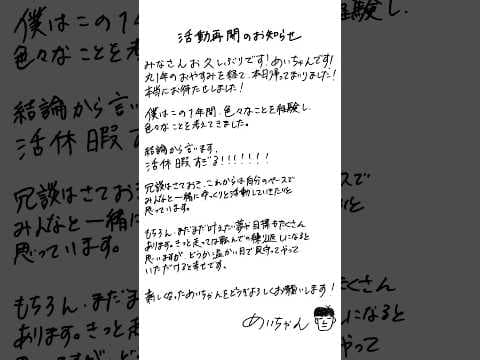 活動再開のお知らせ
みなさんお久しぶりです！めいちゃんです！
丸1年のおやすみを経て、本日帰ってまいりました！
本当にお待たせしました！
僕はこの1年間、色々なことを経験し、
色々なことを考えてきました。
結論から言います、
活休暇すぎる！！！！！！！
冗談はさておき、これからは自分のペースで
みんなと一緒にゆっくりと活動していきたいと
思っています。
もちろん、まだまだ叶えたい夢や目標もたくさん
あります。きっと走っては転んでの繰り返しになると
思いますが、どうか温かい目で見守ってやって
いただけると幸せです。
新しくなっためいちゃんをどうぞよろしくお願いします！
めいちゃん
僕はこの1年
色々なことを
経験し、
結論から言い
活休暇す
冗談はさておき
みんなと一緒に
思っています。
もちろん、まだま
あります。きっと
たくさん
になると